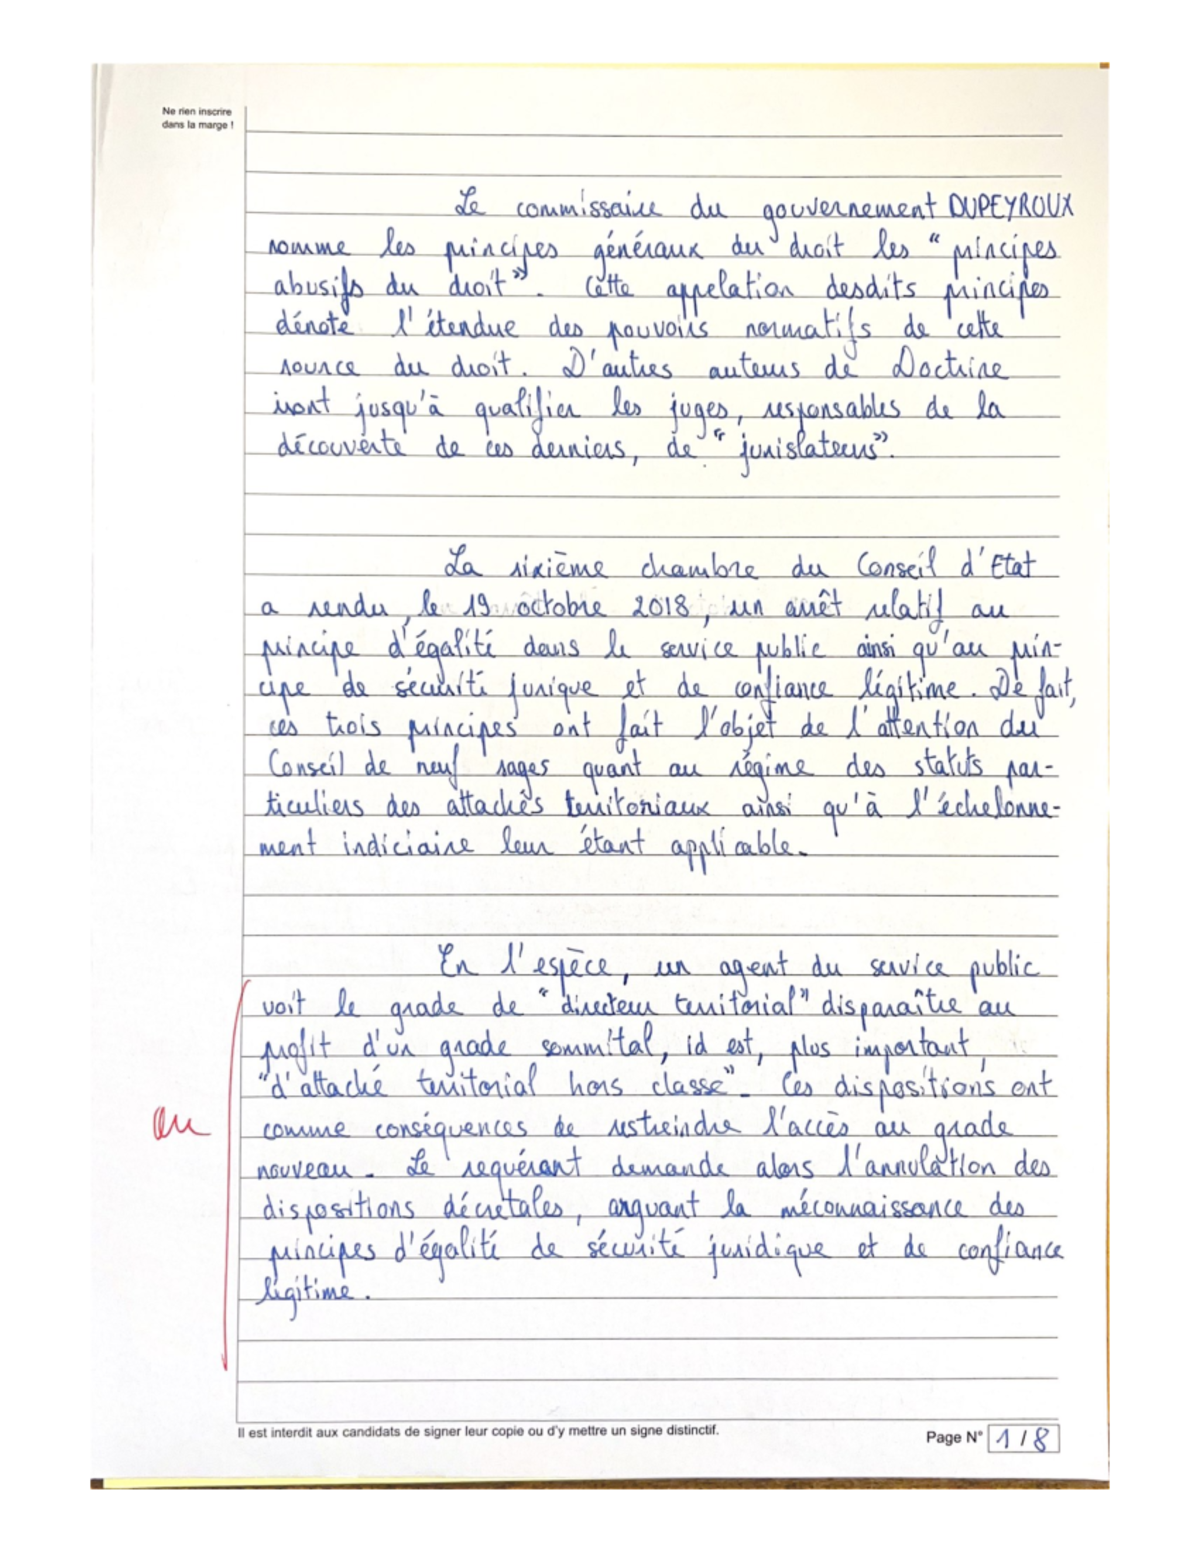 Ne rien inscrire
dans la marge !
Le commissaire du gouvernement DUPEYROUX
nomme les principes généraux du droit les " principes
abusifs du droit ". Cette appelation desdits principes
dénote l'étendue des pouvoirs normatifs de cette
source du droit. D'autres auteurs de Doctrine
iront jusqu'à qualifier les juges, responsables de la
découverte de ces derniers, de " jurislateurs".
La sixième chambre du Conseil d'Etat
a rendu, le 19 octobre 2018, un arrêt relatif au
principe d'égalité dans le service public ainsi qu'au prin-
cipe de sécurité jurique et de confiance légitime. De fait,
ces trois principes ont fait l'objet de l'attention du
Conseil de neuf sages quant au régime des statuts par-
ticuliers des attachés territoriaux ainsi qu'à l'échelonne-
ment indiciaire leur étant applicable.
En l'espèce, un agent du service public
voit le grade de " directeur territorial" disparaître au
profit d'un grade sommital, id est, plus important,
"d'attaché territorial hors classe". Ces dispositions ont
comme conséquences de restreindre l'accès au grade
nouveau. Le requérant demande alors l'annulation des
dispositions décrétales, arguant la méconnaissance des
principes d'égalité de sécurité juridique et de confiance
légitime.
Il est interdit aux candidats de signer leur copie ou d'y mettre un signe distinctif.
Page N° 1 / 8